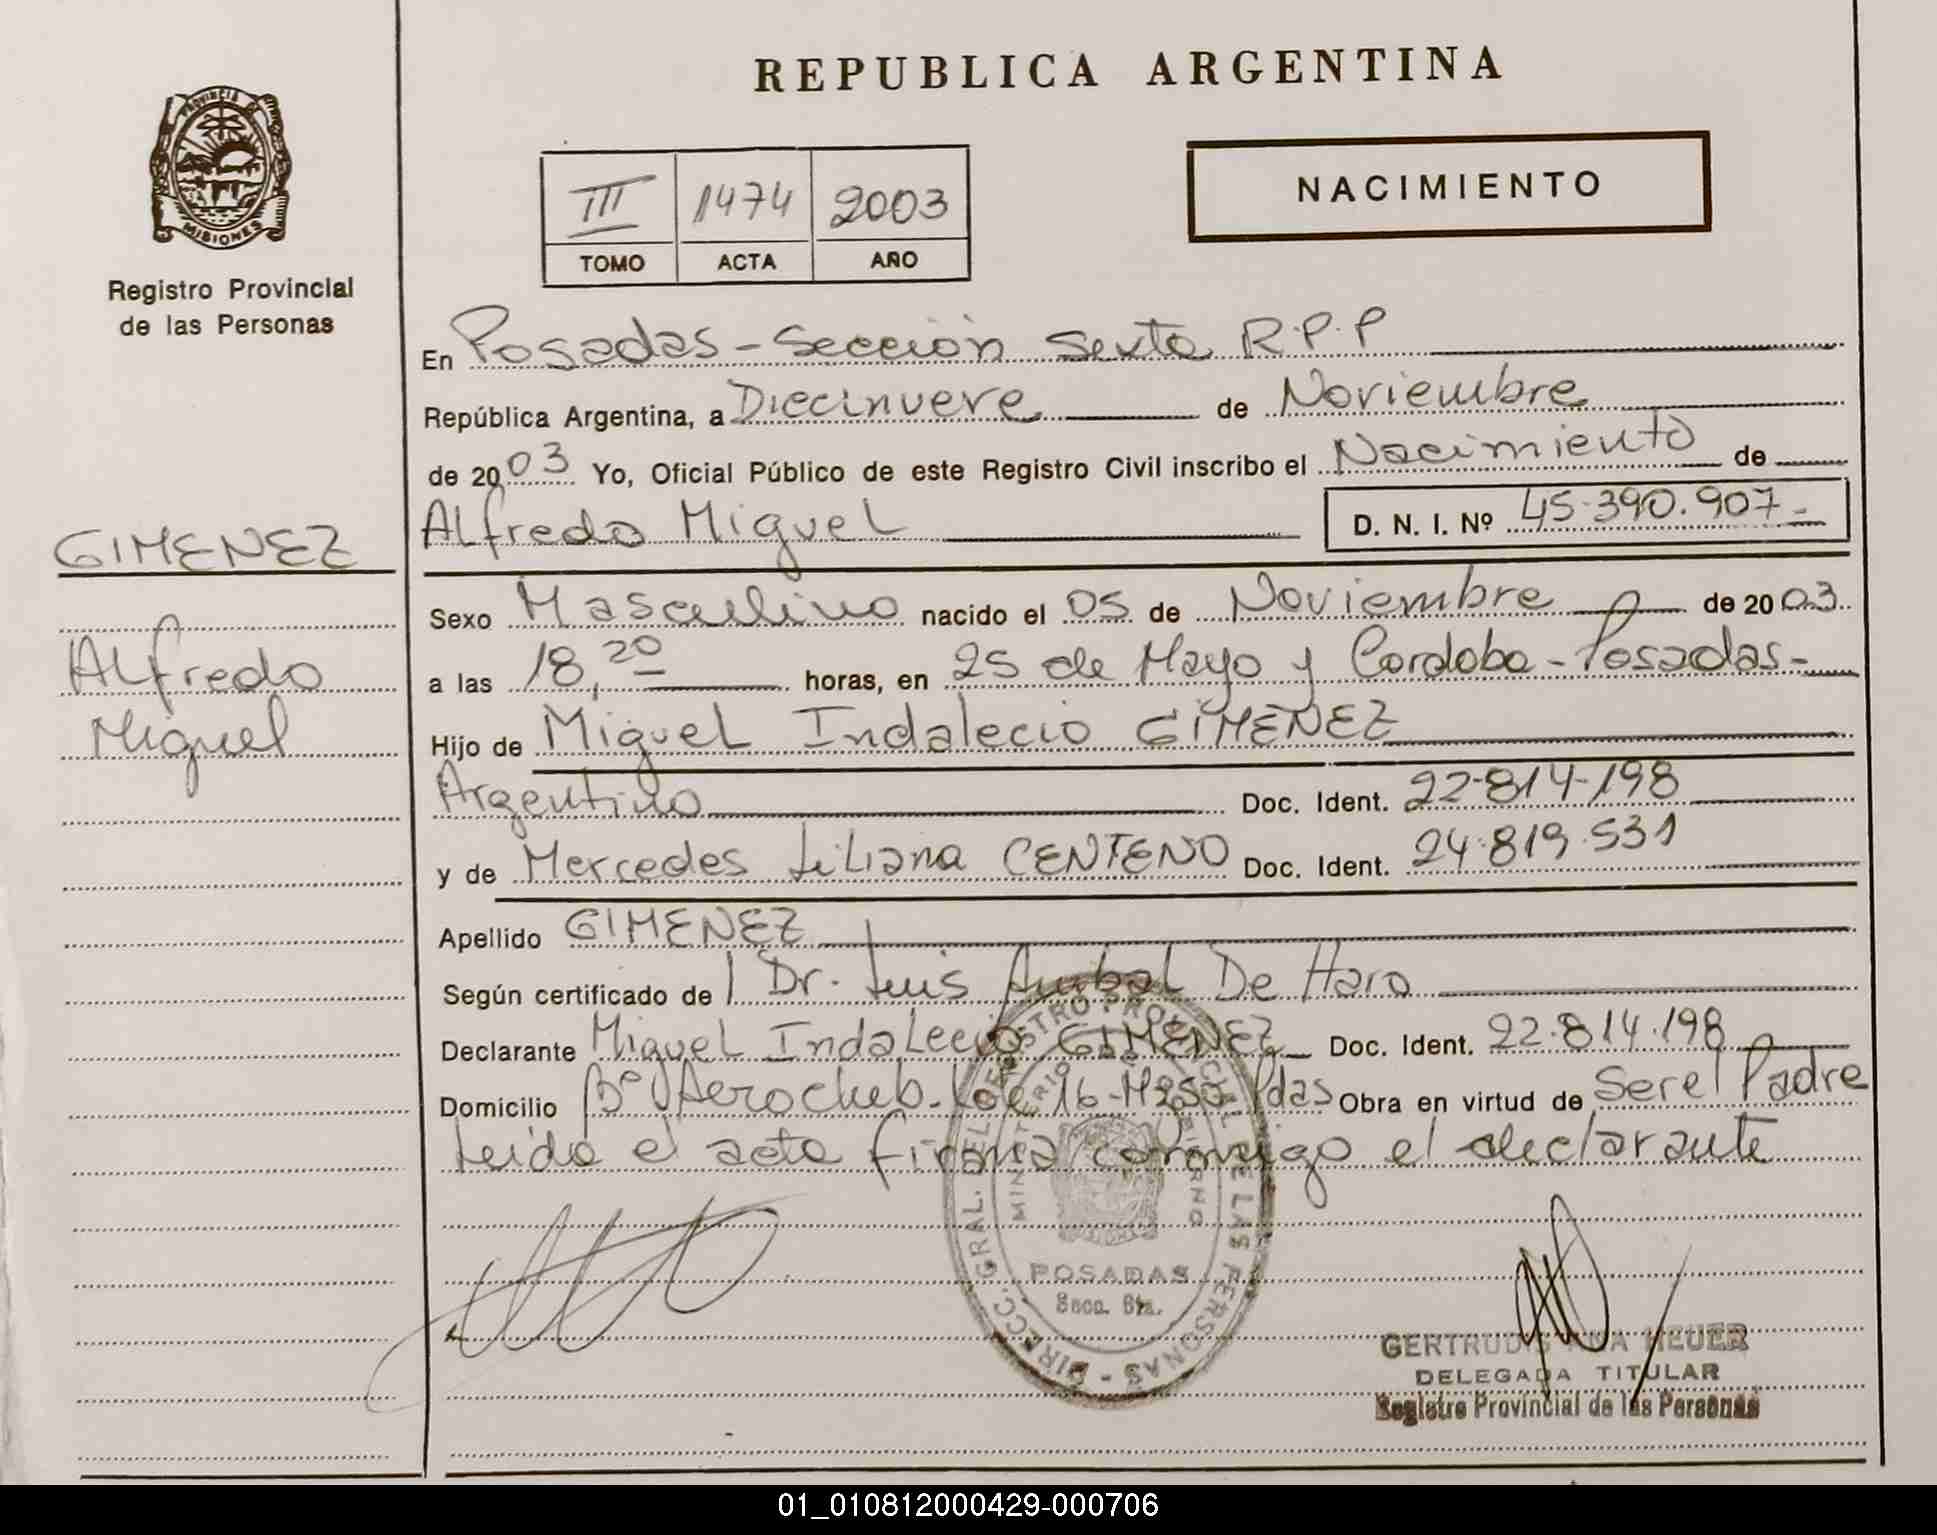 REPUBLICA ARGENTINA
PROVINCIA DE
MISIONES
Registro Provincial
de las Personas
III 1474 2003
TOMO ACTA AÑO
NACIMIENTO
GIMENEZ
Alfredo
Miguel
En Posadas - Sección Sexta R.P.P
República Argentina, a Diecinueve de Noviembre
de 2003 Yo, Oficial Público de este Registro Civil inscribo el Nacimiento de
Alfredo Miguel D. N. I. Nº 45.390.907-
Sexo Masculino nacido el 05 de Noviembre de 2003
a las 18,20 horas, en 25 de Mayo y Cordoba - Posadas -
Hijo de Miguel Indalecio GIMENEZ
Argentino Doc. Ident. 22-814-198
y de Mercedes Liliana CENTENO Doc. Ident. 24.819.531
Apellido GIMENEZ
Según certificado de Dr. Luis Anibal De Haro
Declarante Miguel Indalecio GIMENEZ Doc. Ident. 22.814.198
Domicilio Bº Aeroclub. 16 - Pdas Obra en virtud de Ser el Padre
Leida el acta firma conmigo el declarante
DIRECC. GRAL. DEL REGISTRO PROVINCIAL DE LAS PERSONAS -
MINISTERIO DE GOBIERNO
POSADAS
Secc. 6ta.
GERTRUDIS ANA HEUER
DELEGADA TITULAR
Registro Provincial de las Personas
01_010812000429-000706